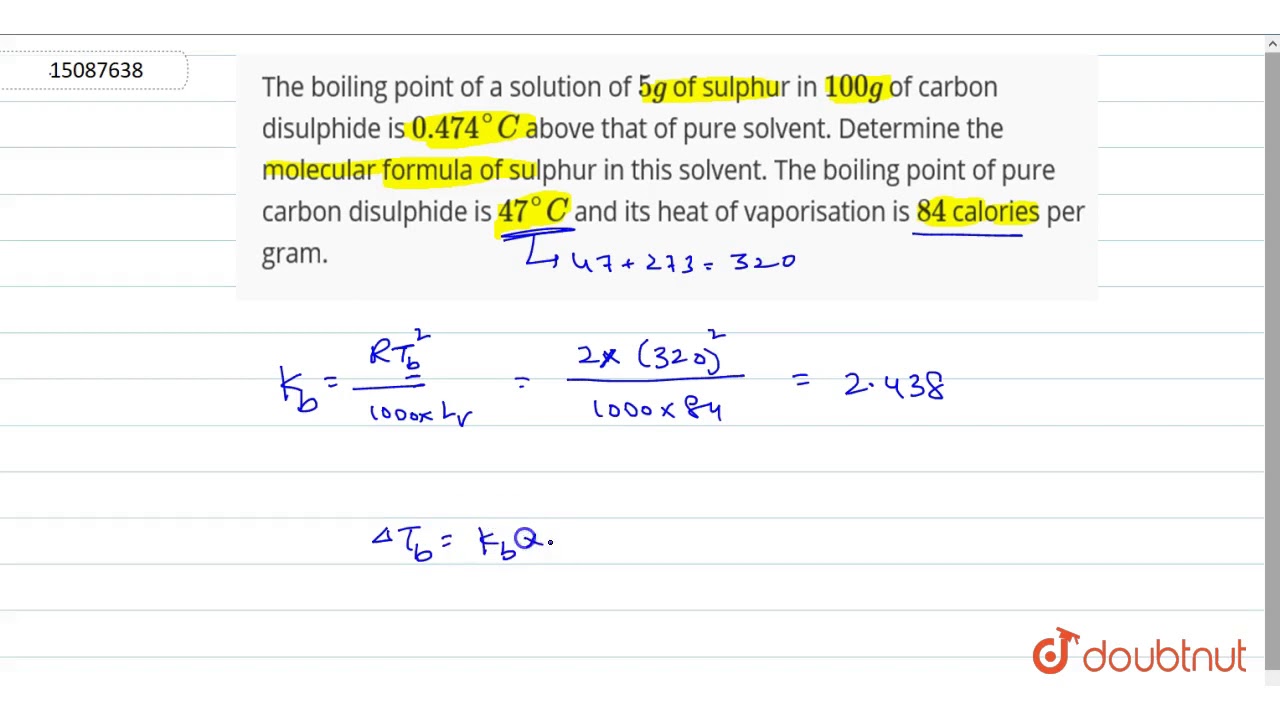 15087638
The boiling point of a solution of 5g of sulphur in 100g of carbon
disulphide is 0.474°C above that of pure solvent. Determine the
molecular formula of sulphur in this solvent. The boiling point of pure
carbon disulphide is 47°C and its heat of vaporisation is 84 calories per
gram.
↳ 47 + 273 = 320
K_b = RT_b² / 1000 × L_v = 2 × (320)² / 1000 × 84 = 2.438
ΔT_b = K_b
doubtnut